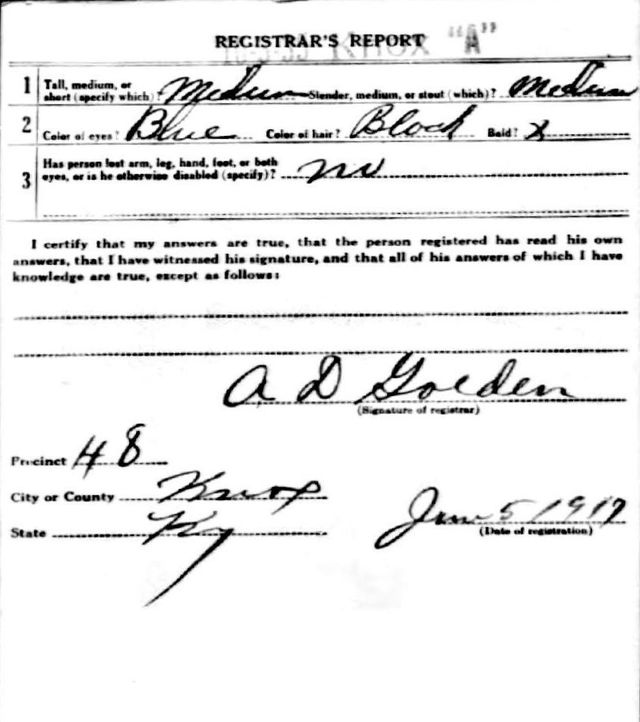 REGISTRAR'S REPORT KNOX "A"
1 Tall, medium, or short (specify which)? Medium Slender, medium, or stout (which)? Medium
2 Color of eyes? Blue Color of hair? Black Bald? x
3 Has person lost arm, leg, hand, foot, or both eyes, or is he otherwise disabled (specify)? no
I certify that my answers are true, that the person registered has read his own
answers, that I have witnessed his signature, and that all of his answers of which I have
knowledge are true, except as follows:
A D Golden
(Signature of registrar)
Precinct 48
City or County Knox
State Ky
June 5 1917
(Date of registration)